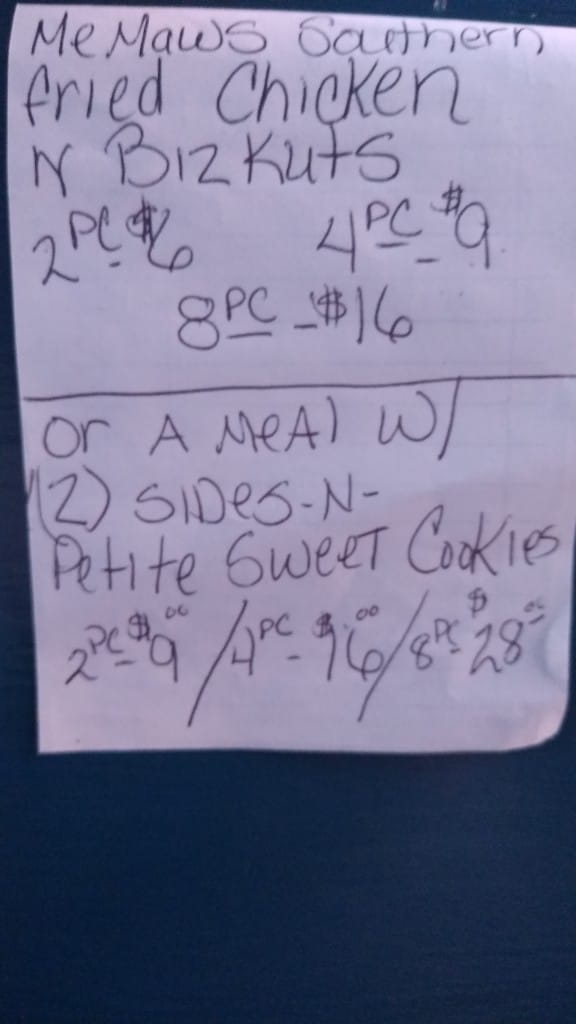 MeMaws Southern
fried Chicken
N BizKuts
2 PC $6 4 PC - $9
8 PC - $16
Or A MeAl W/
(2) SIDes-N-
Petite Sweet Cookies
2 PC - $9.00 / 4 PC - $16.00 / 8 PC - $28.00